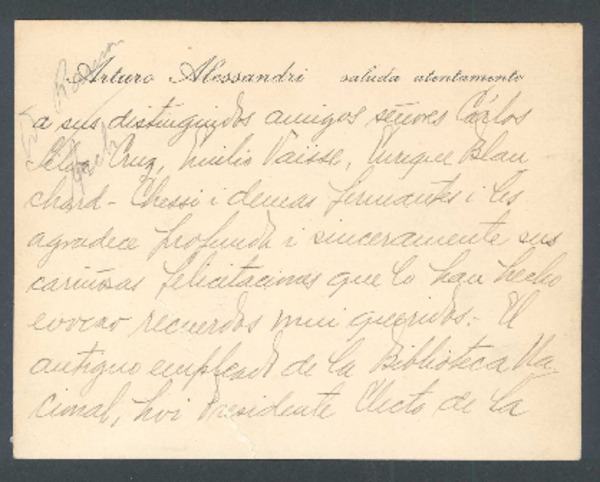 Arturo Alessandri saluda atentamente
a sus distinguidos amigos señores Cárlos
Silva Cruz, Emilio Vaisse, Enrique Blan
chard-Chessi i demas firmantes i les
agradece profunda i sinceramente sus
cariñosas felicitaciones que lo han hecho
evocar recuerdos mui queridos.- El
antiguo empleado de la Biblioteca Na-
cional, hoi Presidente Electo de la